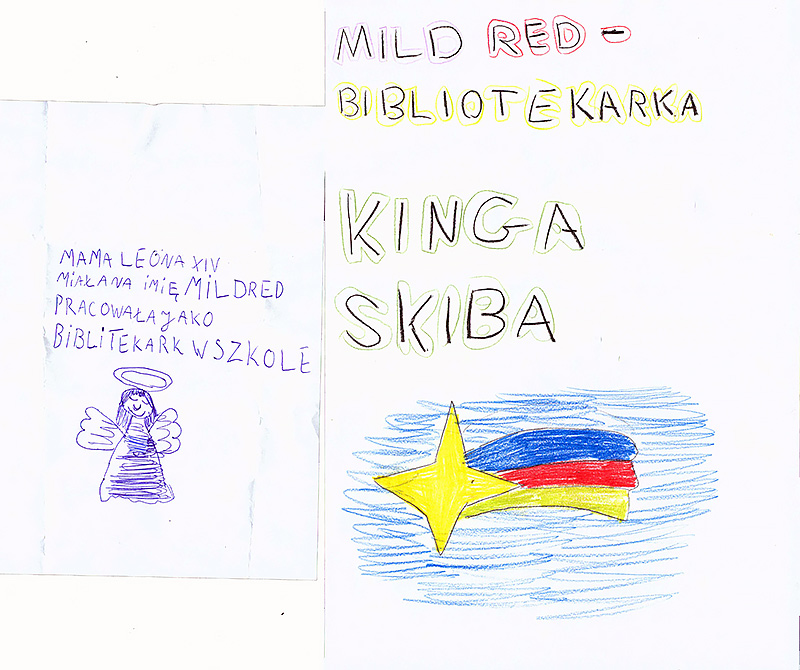 MAMA LEONA XIV
MIAŁANA IMIĘ MILDRED
PRACOWAŁA JAKO
BIBLITEKARK W SZKOLE
MILD RED -
BIBLIOTEKARKA
KINGA
SKIBA